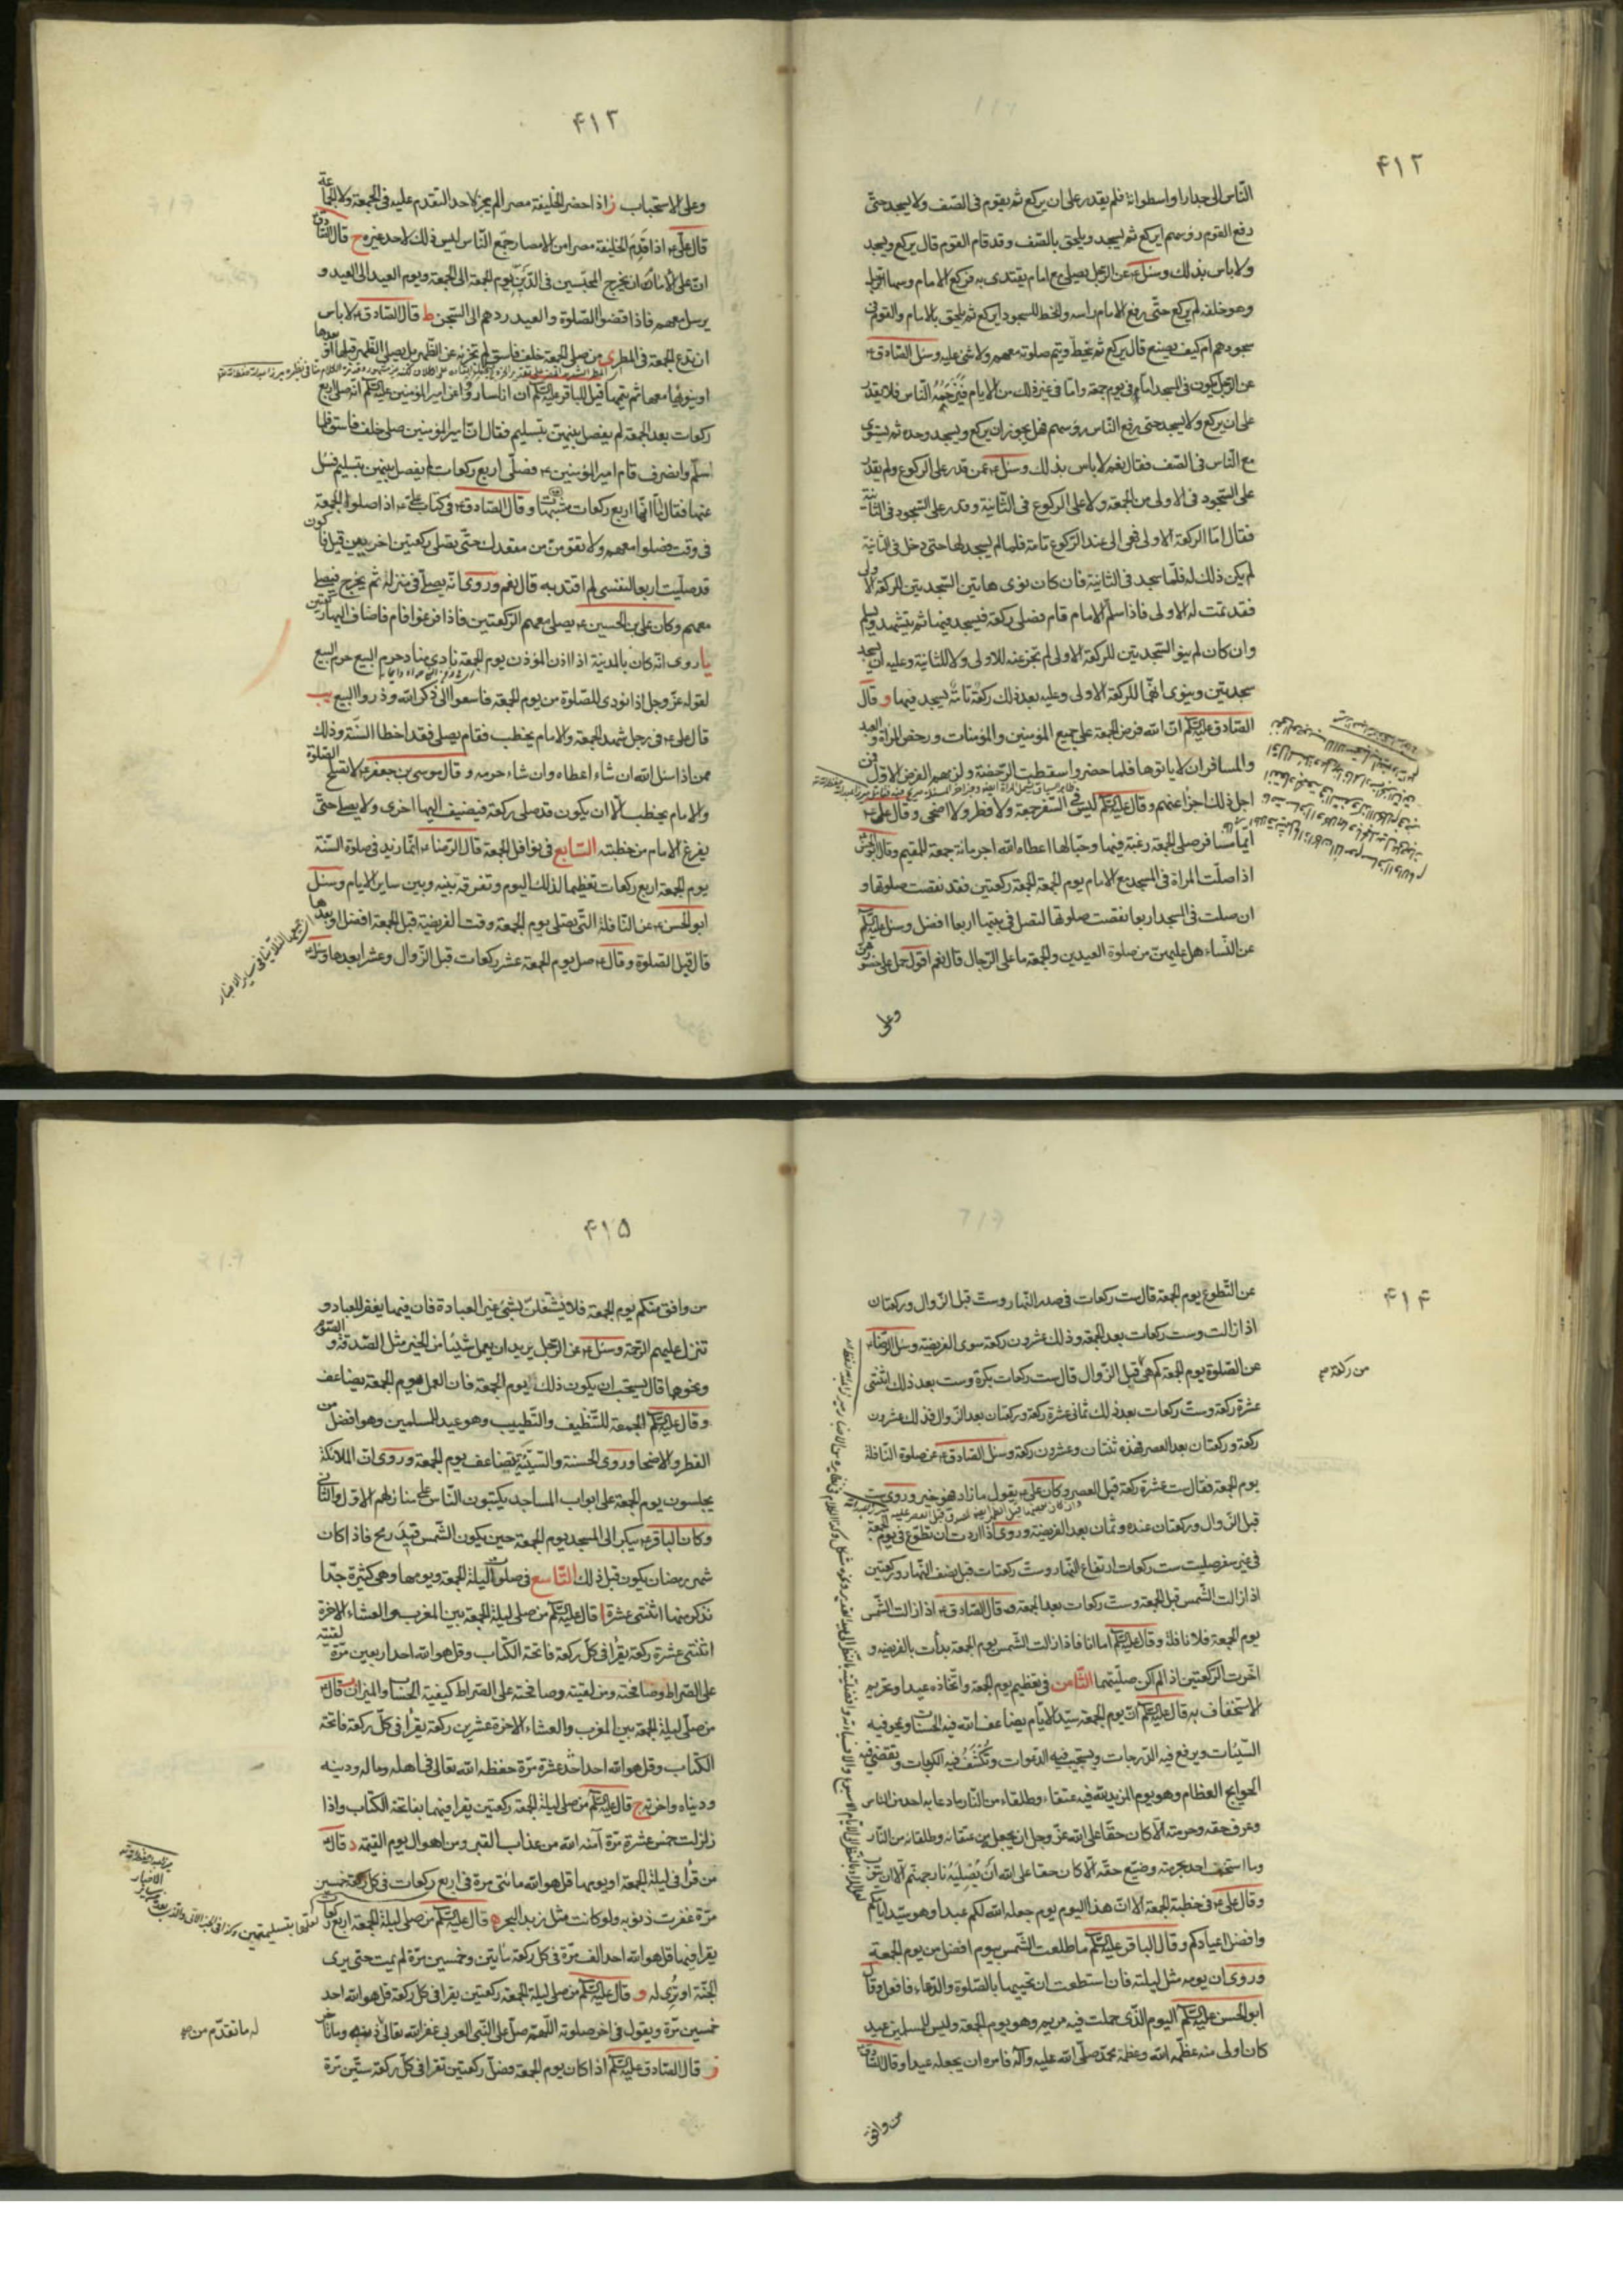 ۴۱۲
النّاس الى جدار او اسطوانة فلم يقدر على ان يركع ثم يقوم فى الصّف ولا يسجد حتّى
رفع القوم رؤسهم ايركع ثم يسجد ويلحق بالصّف وقد قام القوم قال يركع ويسجد
ولا باس بذلك وسئل ع عن الرّجل يصلى مع امام يقتدى به فركع الامام وسها الرّجل
وهو خلفه لم يركع حتّى رفع الامام راسه وانحط للسجود ايركع ثم يلحق بالامام والقوم فى
سجودهم ام كيف يصنع قال يركع ثم ينحطّ ويتم صلوته معهم ولا شئ عليه وسئل الصّادق ع
عن الرّجل يكون فى المسجد امّا فى يوم جمعة وامّا فى غير ذلك من الايام فيزحمه النّاس فلا يقدر
على ان يركع ولا يسجد حتى يرفع النّاس رؤسهم فهل يجوز ان يركع ويسجد وحده ثم يستوى
مع النّاس فى الصّف فقال نعم لا باس بذلك وسئل ع عمن قدر على الركوع ولم يقدر
على السّجود فى الاولى من الجمعة ولا على الركوع فى الثّانية وقدر على السّجود فى الثّانية
فقال امّا الركعة الاولى فهى الى عند الرّكوع تامة فلما لم يسجد لها حتى دخل فى الثّانية
لم يكن ذلك له فلمّا سجد فى الثانية فان كان نوى هاتين السّجدتين للركعة الاولى
فقد تمّت له الاولى فاذا سلّم الامام قام فصلى ركعة فيسجد فيها ثم يتشهد ويسلم
وان كان لم ينو السّجدتين للركعة الاولى لم تجز عنه للاولى ولا للثّانية وعليه ان يسجد
سجدتين وينوى انّهما للركعة الاولى وعليه بعد ذلك ركعة تامّة يسجد فيها و قال
الصّادق عليه السلام انّ الله فرض الجمعة على جميع المؤمنين والمؤمنات ورخص للمراة والعبد
والمسافر ان لا ياتوها فلما حضروا سقطت الرّخصة ولزمهم الفرض الاول فمن
اجل ذلك اجزا عنهم وقال عليه السلام ليس فى السّفر جمعة ولا فطر ولا اضحى وقال على ع
ايّما مسافر صلى الجمعة رغبة فيها وحبّا لها اعطاه الله اجر مائة جمعة للمقيم وقال ابو الحسن
اذا صلّت المراة فى المسجد مع الامام يوم الجمعة الجمعة ركعتين فقد نقصت صلوتها و
ان صلت فى المسجد اربعا نقصت صلوتها لتصل فى بيتها اربعا افضل وسئل عليه السلام
عن النّساء هل عليهنّ من صلوة العيدين والجمعة ما على الرّجال قال نعم اقول حمل على حضورهن
وعلى
۴۱۳
وعلى الاستحباب ز اذا حضر الخليفة مصرا لم يجز لاحد التقدم عليه فى الجمعة ولا الجماعة
قال على ع اذا قدم الخليفة مصرا من الامصار جمع النّاس ليس ذلك لاحد غيره ح قال الصّادق
انّ على الامام ان يخرج المحبّسين فى الدّين يوم الجمعة الى الجمعة ويوم العيد الى العيد و
يرسل معهم فاذا قضوا الصّلوة والعيد ردهم الى السّجن ط قال الصّادق ع لا باس
ان تدع الجمعة فى المطر ى من صلى الجمعة خلف فاسق لم تجزئه عن الظهر بل يصلى الظّهر قبلها او بعدها
او ينويها معها ثم يتمها قيل للباقر عليه السلام ان اناسا رووا عن امير المؤمنين عليه السلام انّه صلى اربع
ركعات بعد الجمعة لم يفصل بينهنّ بتسليم فقال انّ امير المؤمنين صلى خلف فاسق فلما
سلّم وانصرف قام امير المؤمنين ع فصلّى اربع ركعات لم يفصل بينهن بتسليم فسئل
عنها فقال انّها اربع ركعات مشبّهات وقال الصّادق ع فى كتاب على ع اذا صلوا الجمعة
فى وقت فصلوا معهم ولا تقومنّ من مقعدك حتّى تصلى ركعتين اخريين قيل فاكون
قد صليت اربعا لنفسى لم اقتد به قال نعم وروى انّه يصلّى فى منزله ثم يخرج فيصلى
معهم وكان على بن الحسين ع يصلى معهم الركعتين فاذا فرغوا قام فاضاف اليها ركعتين
يا روى انّه كان بالمدينة اذا اذن المؤذن يوم الجمعة نادى مناد حرم البيع حرم البيع
لقوله عزّ وجل اذا نودى للصّلوة من يوم الجمعة فاسعوا الى ذكر الله وذروا البيع يب
قال على ع فى رجل شهد الجمعة والامام يخطب فقام يصلى فقد اخطا السّنّة وذلك
ممن اذا سئل الله ان شاء اعطاه وان شاء حرمه و قال موسى بن جعفر ع لا تصلح الصّلوة
والامام يخطب الّا ان يكون قد صلى ركعة فيضيف اليها اخرى ولا يصلى حتّى
يفرغ الامام من خطبته السّابع فى نوافل الجمعة قال الرّضا ع انّما زيد فى صلوة السّنّة
يوم الجمعة اربع ركعات تعظيما لذلك اليوم وتفرقة بينه وبين ساير الايام وسئل
ابو الحسن ع عن النّافلة التّى تصلى يوم الجمعة وقت الفريضة قبل الجمعة افضل او بعدها
قال قبل الصّلوة وقال ع صل يوم الجمعة عشر ركعات قبل الزّوال وعشرا بعدها وسئل ع
۴۱۴
عن التّطوع يوم الجمعة قال ست ركعات فى صدر النّهار وستّ قبل الزّوال وركعتان
اذا زالت وست ركعات بعد الجمعة وذلك عشرون ركعة سوى الفريضة وسئل الرّضا ع
عن الصّلوة يوم الجمعة كم هى قبل الزّوال قال ست ركعات بكرة وست بعد ذلك اثنتى
من ركعة صح
عشرة ركعة وستّ ركعات بعد ذلك ثمانى عشرة ركعة وركعتان بعد الزّوال فذلك عشرون
ركعة وركعتان بعد العصر فهذه ثنتان وعشرون ركعة وسئل الصّادق ع عن صلوة النّافلة
يوم الجمعة فقال ست عشرة ركعة قبل العصر وكان على ع يقول ما زاد فهو خير وروى ست
قبل الزّوال وركعتان عنده وثمان بعد الفريضة وروى اذا اردت ان تطوّع فى يوم الجمعة
فى غير سفر صليت ست ركعات ارتفاع النّهار وستّ ركعات قبل نصف النّهار وركعتين
اذا زالت الشّمس قبل الجمعة وستّ ركعات بعد الجمعة وقال الصّادق ع اذا زالت الشّمس
يوم الجمعة فلا نافلة وقال عليه السلام اما انا فاذا زالت الشّمس يوم الجمعة بدأت بالفريضة و
اخّرت الرّكعتين اذا لم اكن صلّيتهما الثّامن فى تعظيم يوم الجمعة واتّخاذه عيدا وتحريم
الاستخفاف به قال عليه السلام انّ يوم الجمعة سيّد الايام يضاعف الله فيه الحسنات ويمحو فيه
السّيّئات ويرفع فيه الدّرجات ويستجيب فيه الدّعوات وتكشف فيه الكربات وتقضى فيه
الحوايج العظام وهو يوم المزيد لله فيه عتقاء وطلقاء من النّار ما دعا به احد من النّاس
وعرف حقه وحرمته الّا كان حقّا على الله عزّ وجل ان يجعله من عتقائه وطلقائه من النّار
وما استخف احد بحرمته وضيّع حقّه الّا كان حقا على الله ان يصليه نار جهنّم الّا ان يتوب
وقال على ع فى خطبة الجمعة الا انّ هذا اليوم يوم جعله الله لكم عيدا وهو سيّد ايامكم
وافضل اعيادكم وقال الباقر عليه السلام ما طلعت الشّمس بيوم افضل من يوم الجمعة
وروى ان يومه مثل ليلته فان استطعت ان تحييها بالصّلوة والدّعاء فافعل وقال
ابو الحسن عليه السلام اليوم الذّى حملت فيه مريم وهو يوم الجمعة وليس للمسلمين عيد
كان اولى منه عظّمه الله وعظمه محمّد صلّى الله عليه وآله فامره ان يجعله عيدا وقال الصّادق
من وافق
۴۱۵
من وافق منكم يوم الجمعة فلا يشتغلنّ بشئ غير العبادة فان فيها يغفر للعباد و
تنزل عليهم الرّحمة وسئل ع عن الرّجل يريد ان يعمل شيئا من الخير مثل الصّدقة والصّوم
ونحوها قال يستحب ان يكون ذلك ليوم الجمعة فان العمل يوم الجمعة يضاعف
وقال عليه السلام الجمعة للتّنظيف والتّطييب وهو عيد المسلمين وهو افضل من
الفطر والاضحى وروى الحسنة والسّيّئة يضاعف يوم الجمعة وروى انّ الملائكة
يجلسون يوم الجمعة على ابواب المساجد يكتبون النّاس على منازلهم الاول والثّانى
وكان الباقر ع يبكر الى المسجد يوم الجمعة حين يكون الشّمس قيد رمح فاذا كان
شهر رمضان يكون قبل ذلك التّاسع فى صلوات ليلة الجمعة ويومها وهى كثيرة جدّا
نذكر منها اثنتى عشرة ا قال عليه السلام من صلى ليلة الجمعة بين المغرب والعشاء الاخرة
اثنتى عشرة ركعة يقرا فى كلّ ركعة فاتحة الكتاب وقل هو الله احد اربعين مرّة لقيته
على الصّراط وصافحته ومن لقيته وصافحته على الصّراط كيفية الحساب والميزان ب قال ع
من صلّى ليلة الجمعة بين المغرب والعشاء الاخرة عشرين ركعة يقرأ فى كلّ ركعة فاتحة
الكتاب وقل هو الله احد احد عشرة مرّة حفظه الله تعالى فى اهله وماله ودينه
ودنياه واخرته ج قال عليه السلام من صلى ليلة الجمعة ركعتين يقرا فيهما بفاتحة الكتاب واذا
زلزلت خمس عشرة مرّة آمنه الله من عذاب القبر ومن اهوال يوم القيمة د قال ع
من قرأ فى ليلة الجمعة او يومها قل هو الله مائتى مرة فى اربع ركعات فى كل ركعة خمسين
مرّة غفرت ذنوبه ولو كانت مثل زبد البحر ه قال عليه السلام من صلى ليلة الجمعة اربع ركعات
يقرا فيها قل هو الله احد الف مرّة فى كل ركعة مأتين وخمسين مرّة لم يمت حتى يرى
الجنّة او ترى له و قال عليه السلام من صلى ليلة الجمعة ركعتين يقرا فى كل ركعة قل هو الله احد
خمسين مرّة ويقول فى اخر صلوته اللّهمّ صلّ على النّبى العربى غفر الله تعالى ذنبه وما تاخر
له ما تقدّم من صح
ز قال الصّادق عليه السلام اذا كان يوم الجمعة فصلّ ركعتين تقرا فى كلّ ركعة ستّين مرّة